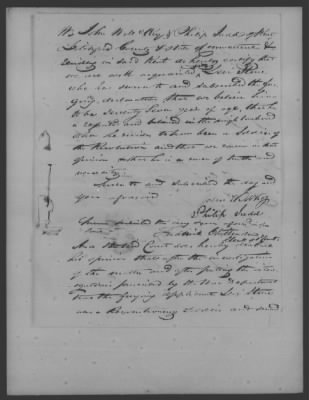 We John W & Philip Judd of Kent
Litchfield County & State of Connecticut &
residing in said Kent do hereby certify that
we are well acquainted with Levi Stone
who has sworn to and subscribed the fore
going declaration that we believe him
to be seventy seven years of age, that he
is reputed and believed in the neighbourhood
where he resides to have been a soldier of
the Revolution and that we concur in that
opinion & that he is a man of truth and
veracity
Sworn to and subscribed the day and
year aforesaid
John
Philip Judd
Sworn and subscribed the day & year aforesaid
before
And the said Court does hereby declare
his opinion that after the investigation
of the matter and after putting the inter
rogatories prescribed by the War Department
that the foregoing applicant Levi Stone
was a Revolutionary Soldier and served